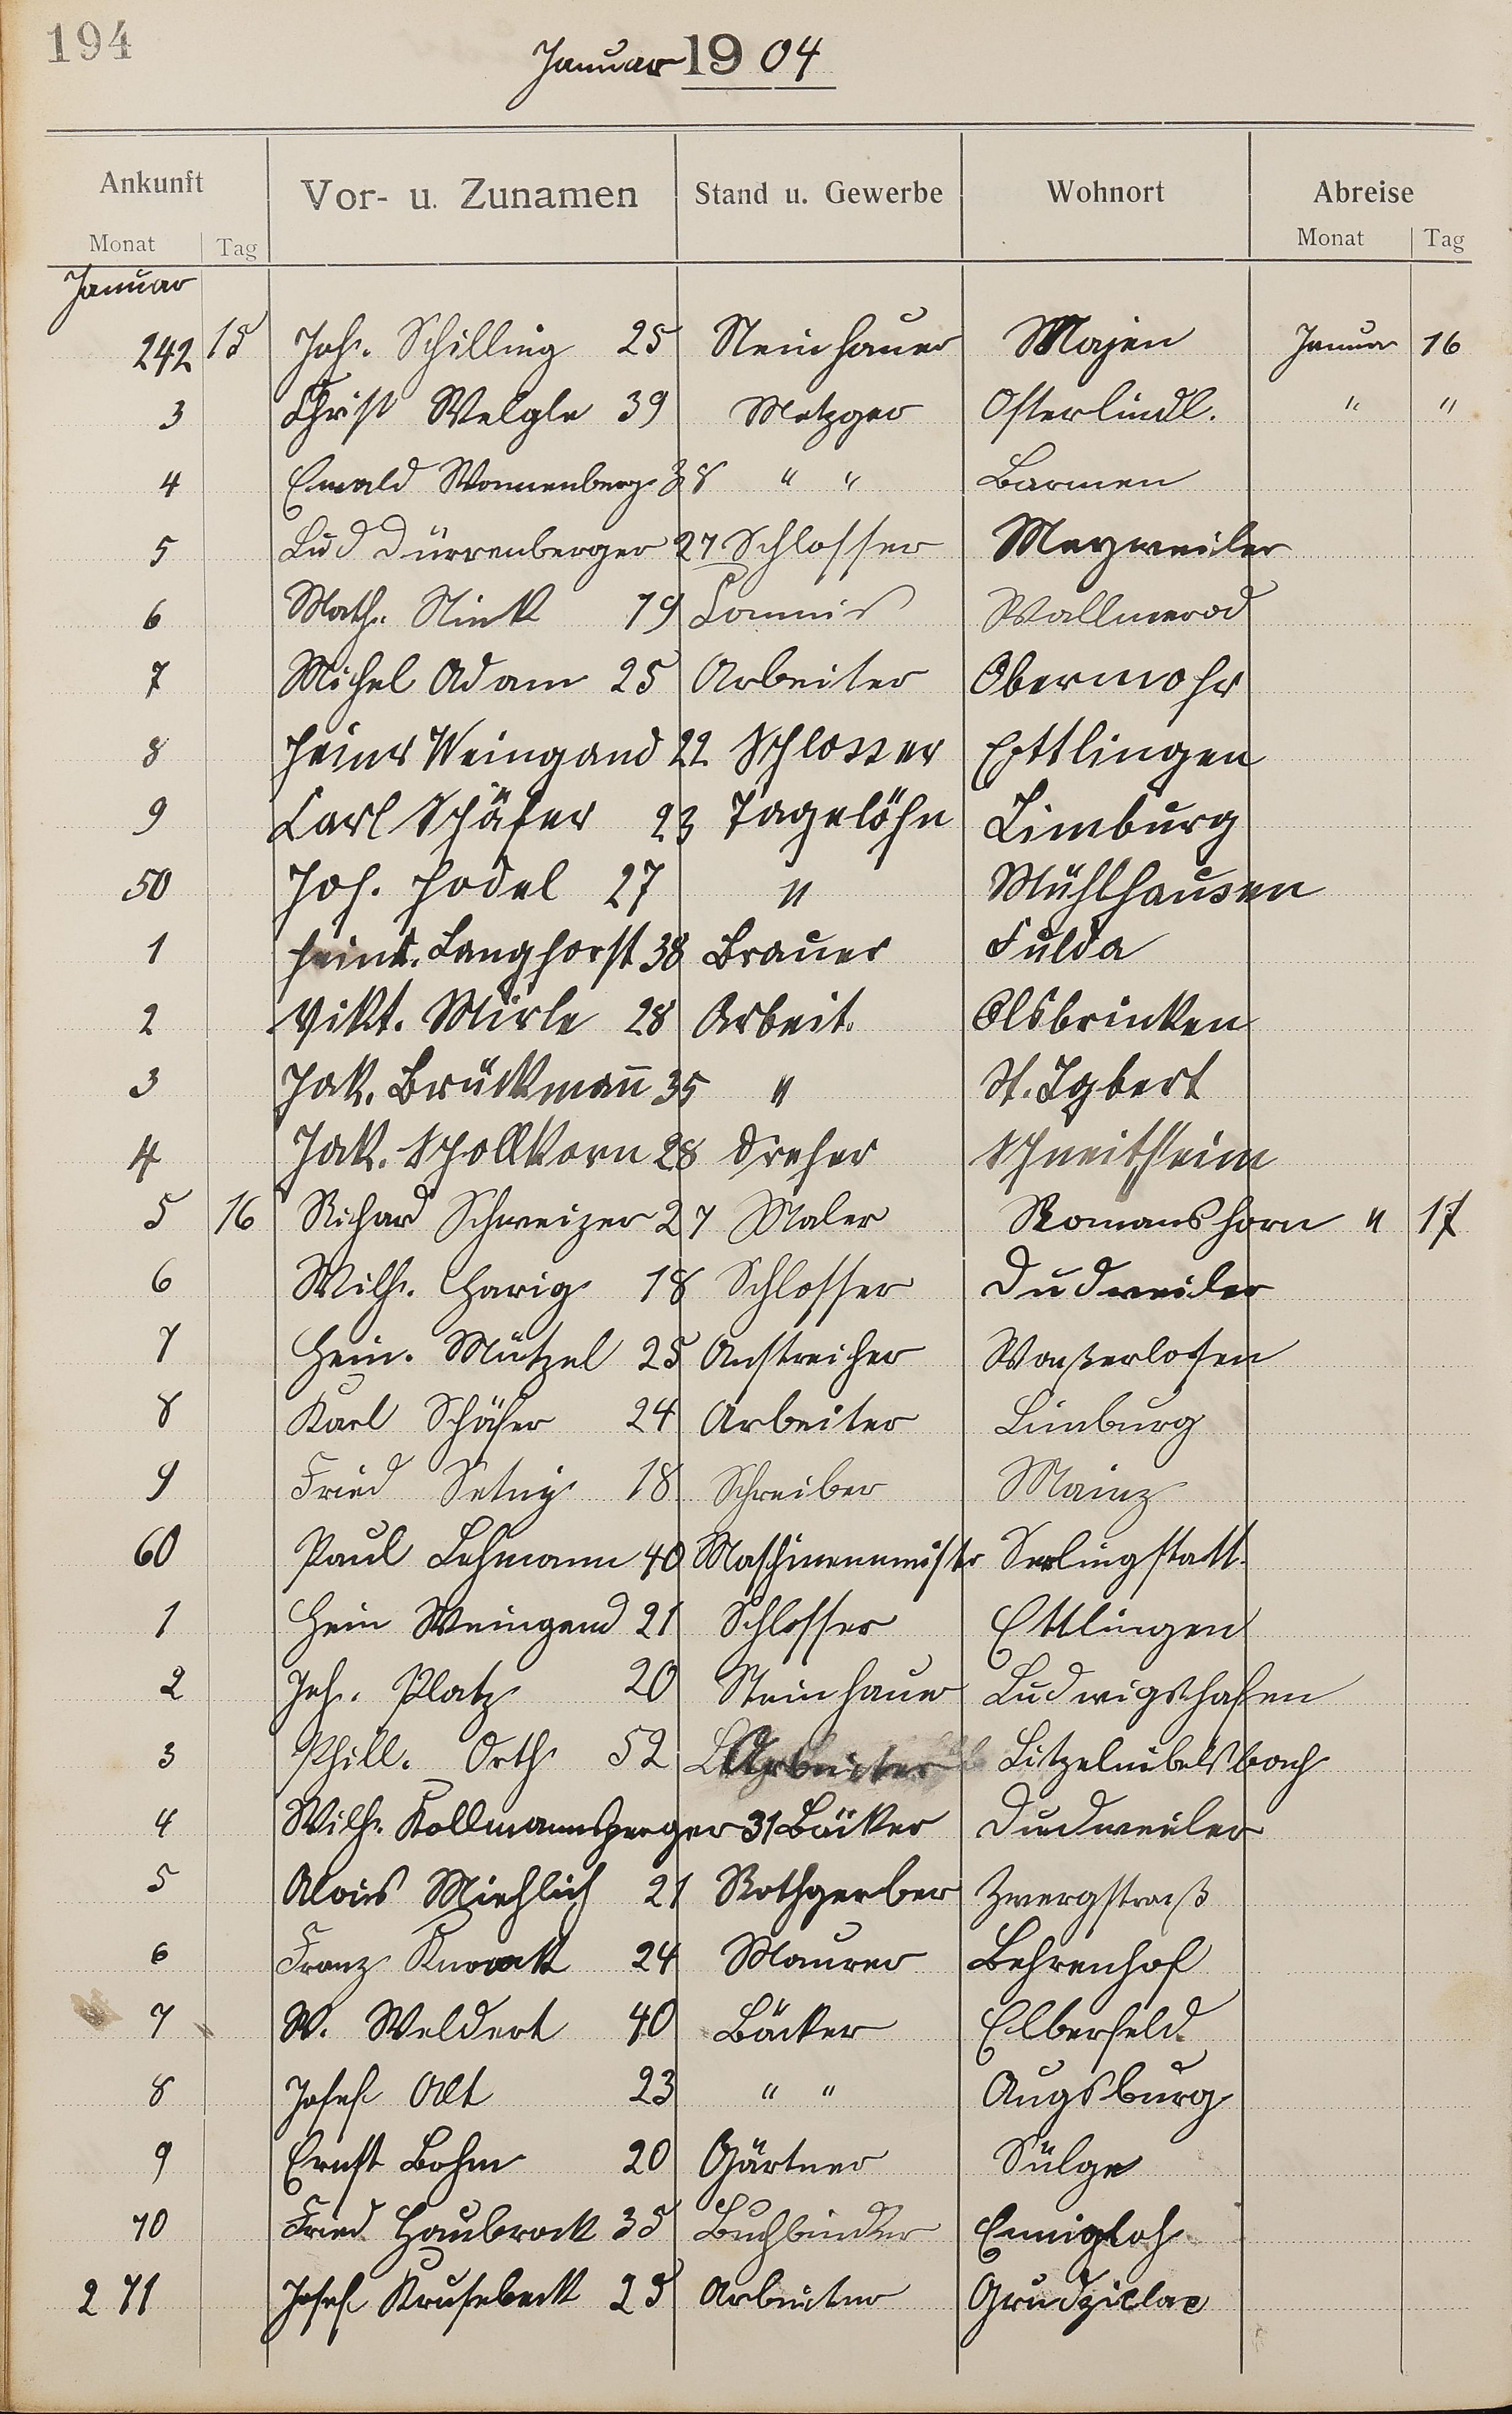 194
Januar 1904
Ankunft Vor- u. Zunamen Stand u. Gewerbe Wohnort Abreise
Monat Tag Monat Tag
Januar
242 15 Joh. Schilling 25 Steinhauer Majen Januar 16
3 Christ Welgle 39 Metzger Osterlindl. " "
4 Ewald Wonnenberg 38 " " Barmen
5 Lud Dürrenberger 27 Schlosser Mayweiler
6 Math. Nink 19 Commis Wallmerod
7 Michel Adam 25 Arbeiter Obermohr
8 Heinr Weingand 22 Schlosser Ettlingen
9 Carl Schäfer 23 Tagelöhn Limburg
50 Joh. Hodel 27 " Mühlhausen
1 Heinr. Langhorst 38 Brauer Fulda
2 Vikt. Mirle 28 Arbeit. Olsbrinken
3 Jak. Brückmann̄ 35 " St. Igbert
4 Jak. Schollkorn 28 Dreher Schneitheim
5 16 Richard Schweizer 27 Maler Romanshorn " 17
6 Wilh. Harig 18 Schlosser Dudweiler
7 Hein. Mützel 25 Anstreicher Waßerlosen
8 Karl Schäfer 24 Arbeiter Limburg
9 Fried 18 Schreiber Mainz
60 Paul Lehmann 40 Maschinenmistr Serlingstatt
1 Hein Weingand 21 Schlosser Ettlingen
2 Joh. Platz 20 Steinhauer Ludwigshafen
3 Phill. Orth 52 Arbeiter Litzelnibelsbach
4 Wilh. Kollmannsperger 31 Bäcker Dudweiler
5 Alois Miehlich 21 Rothgerber Zwergstraß
6 Franz Knaack 24 Maurer Behrenhof
7 W. Weldert 40 Bäcker Elberfeld
8 Josef Alt 23 " " Augsburg
9 Ernst Bohm 20 Gärtner Sülge
70 Fried Haubrock 35 Buchbinder Ennigloh
271 Josef Krusebeck 25 Arbeiter